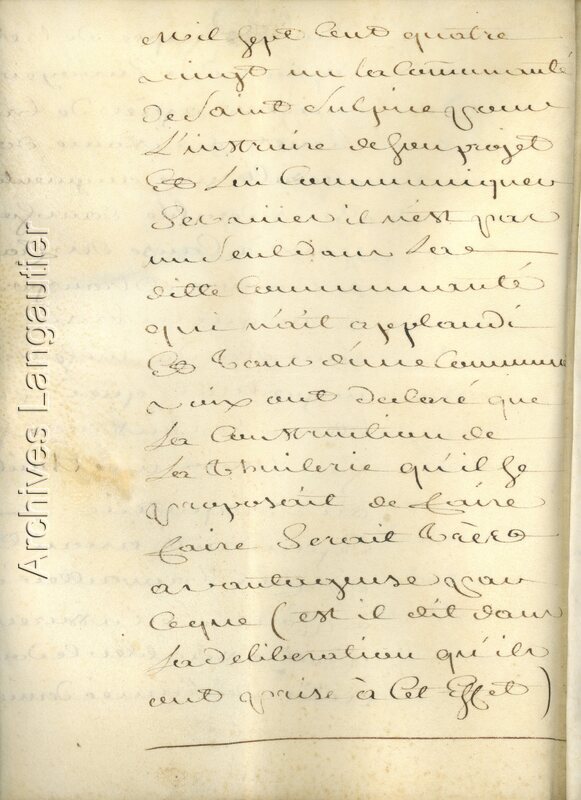 Mil sept cent quatre
vingt un la Communauté
de Saint Sulpice pour
L'instruire de son projet
Et Lui Communiquer
Ses vues il n'est pas
un seul dans la
ditte Communauté
qui n'ait applaudi
Et tous d'une Commune
voix ont declaré que
La Construction de
La thuilerie qu'il se
proposait de faire
faire Serait très
avantageuse par
Ceque (est il dit dans
La deliberation qu'ils
ont prise à Cet Effet)
Archives Langautier